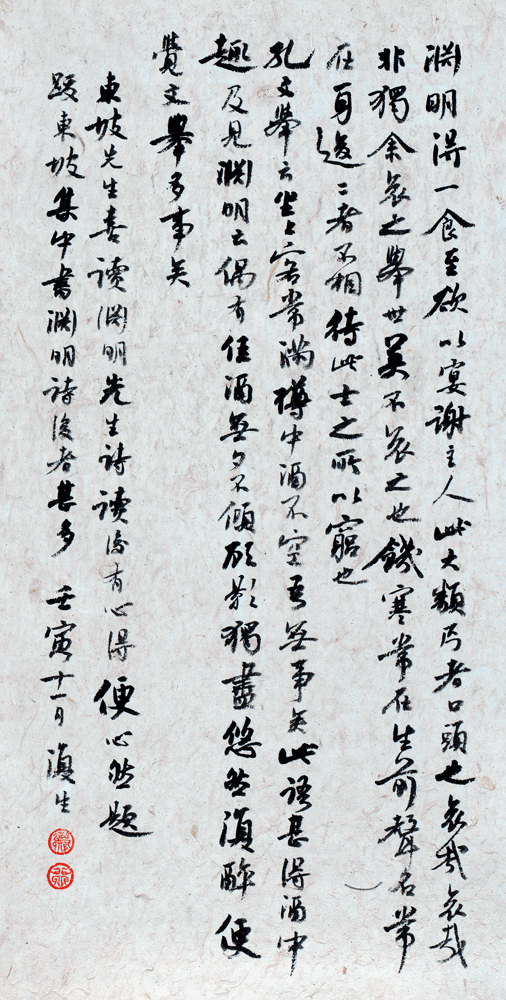 渊明得一食至欲以宴謝主人此大類丐者口頭也哀哉哀哉
非獨余哀之舉世莫不哀之也饑寒常在生前聲名常
在身後二者不相待此士之所以窮也
孔文舉云坐上客常滿樽中酒不空吾無事矣此語甚得酒中
趣及見渊明云偶有佳酒無夕不傾顧影獨盡悠然復醉便
覺文舉多事矣
東坡先生喜讀渊明先生詩讀後有心得便必然題
跋東坡集中書渊明詩後者甚多 壬寅十一月 復生